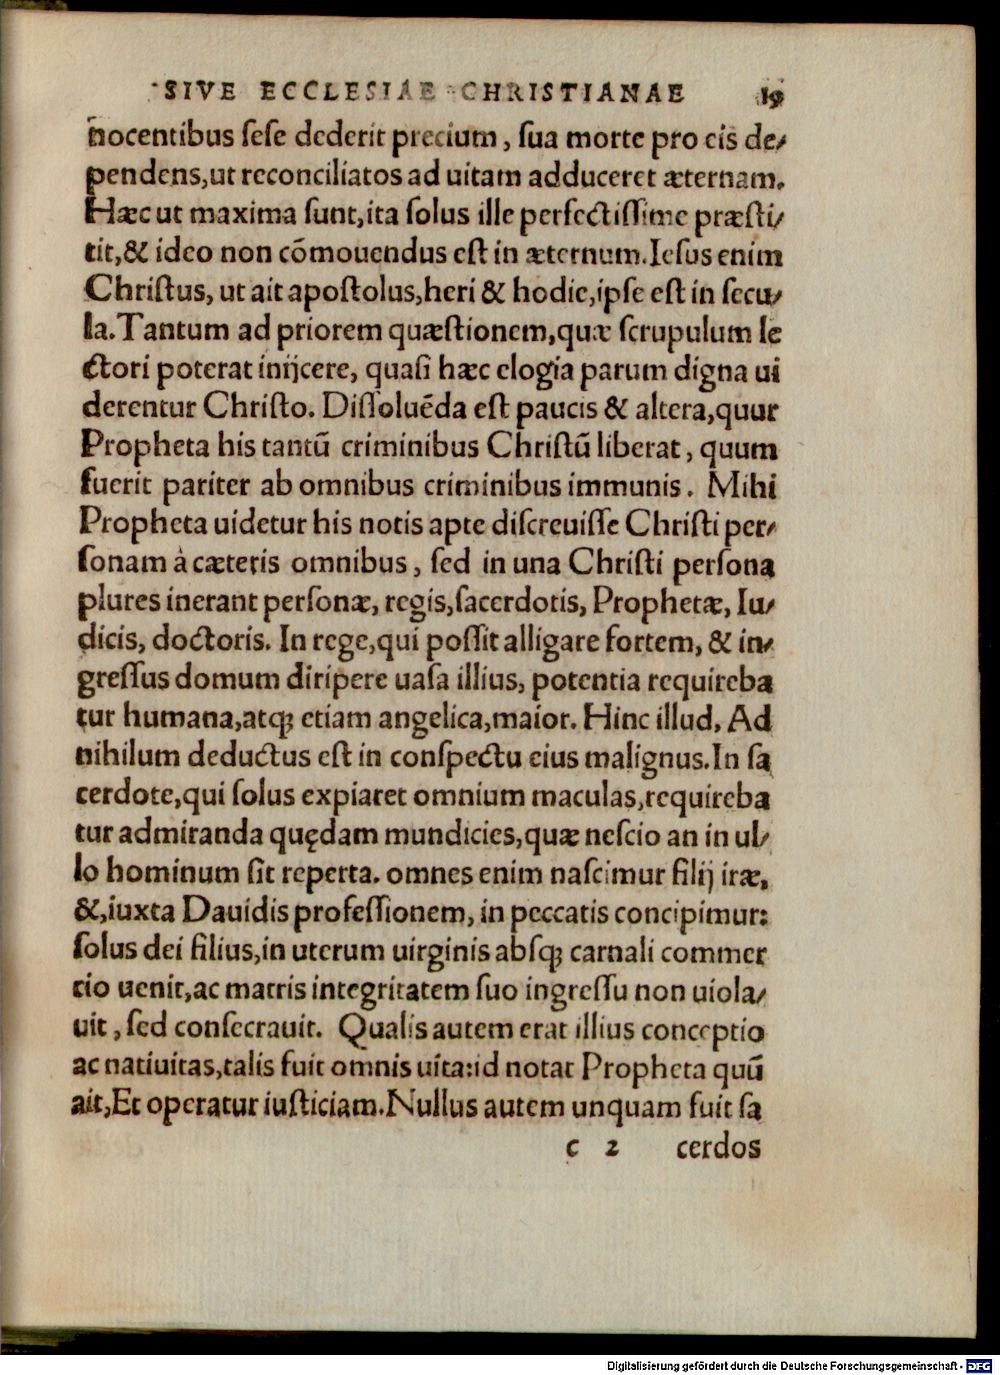 SIVE ECCLESIAE CHRISTIANAE 19
nocentibus seſe dederit precium, sua morte pro eis de⸗
pendens,ut reconciliatos ad uitam adduceret æternam.
Hæc ut maxima ſunt,ita ſolus ille perfectiſſime præſti⸗
tit,& ideo non cōmouendus eſt in æternum.Ieſus enim
Chriſtus, ut ait apoſtolus,heri & hodie,ipſe eſt in ſecu⸗
la.Tantum ad priorem quæſtionem,quæ ſcrupulum le
ctori poterat inijcere, quaſi hæc elogia parum digna ui
derentur Chriſto. Diſſoluēda eſt paucis & altera,quur
Propheta his tantū criminibus Chriſtū liberat, quum
fuerit pariter ab omnibus criminibus immunis. Mihi
Propheta uidetur his notis apte diſcreuiſſe Chriſti per⸗
ſonam à cæteris omnibus, ſed in una Chriſti perſona
plures inerant perſonæ, regis,ſacerdotis, Prophetæ, Iu⸗
dicis, doctoris. In rege,qui poſſit alligare fortem, & in⸗
greſſus domum diripere uaſa illius, potentia requireba
tur humana,atq; etiam angelica,maior. Hinc illud, Ad
nihilum deductus eſt in conſpectu eius malignus.In ſa
cerdote,qui ſolus expiaret omnium maculas,requireba
tur admiranda quędam mundicies,quæ neſcio an in ul⸗
lo hominum ſit reperta. omnes enim naſcimur filij iræ,
&,iuxta Dauidis profeſſionem, in peccatis concipimur:
ſolus dei filius,in uterum uirginis abſq; carnali commer
cio uenit,ac matris integritatem ſuo ingreſſu non uiola⸗
uit, ſed conſecrauit. Qualis autem erat illius conceptio
ac natiuitas,talis fuit omnis uita:id notat Propheta quū
ait,Et operatur iuſticiam.Nullus autem unquam fuit ſa
c 2 cerdos
Digitalisierung gefördert durch die Deutsche Forschungsgemeinschaft - DFG